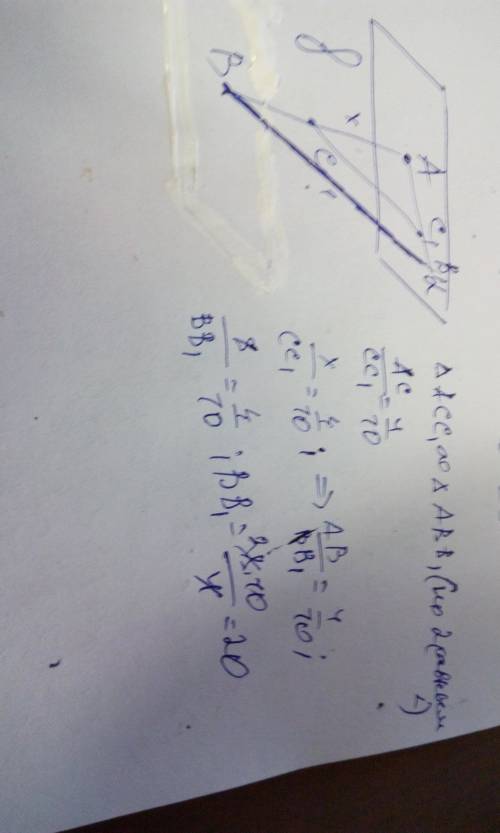 8
B
x
A
C
C₁
B₁
α
Δ ACC₁ ∾ Δ ABB₁ (по 2 равным ∠)
AC/CC₁ = 4/10
x/CC₁ = 4/10 ; ⇒ AB/BB₁ = 4/10 ;
8/BB₁ = 4/10 ; BB₁ = 8·10/4 = 20